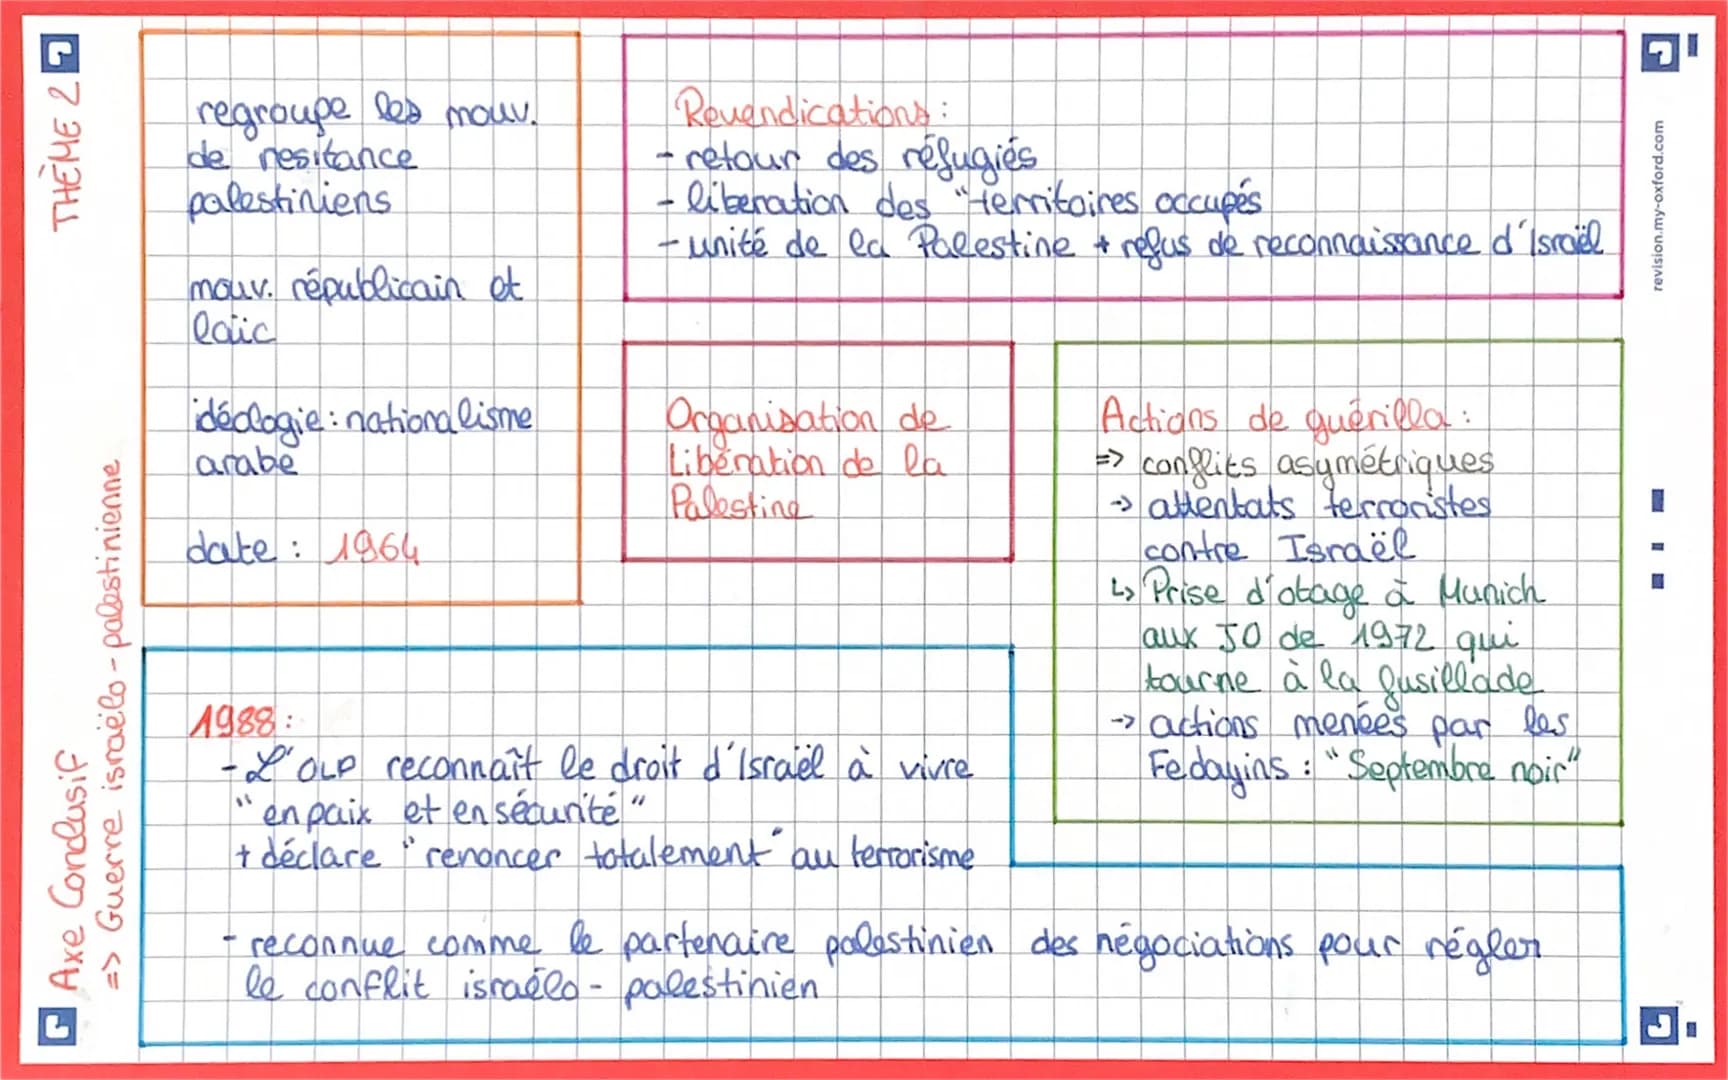 THÈME 2
Axe Conclusif
=> Guerre israëlo-palestinienne
regroupe les mouv.
de resitance
palestiniens
mouv. républicain et
laïc
idéologie : nationalisme
arabe
date : 1964
Revendications :
- retour des réfugiés
- libération des "territoires occupés
- unité de la Palestine + refus de reconnaissance d'Israël
Organisation de
Libération de la
Palestine
Actions de guérilla :
=> conflits asymétriques
-> attentats terroristes
contre Israël
↳ Prise d'otage à Munich
aux JO de 1972 qui
tourne à la fusillade
-> actions menées par les
Fedayins : "Septembre noir"
1988 :
- L'OLP reconnaît le droit d'Israël à vivre
"en paix et en sécurité"
+ déclare "renoncer totalement" au terrorisme
- reconnue comme le partenaire palestinien des négociations pour régler
le conflit israélo-palestinien
revision.my-oxford.com